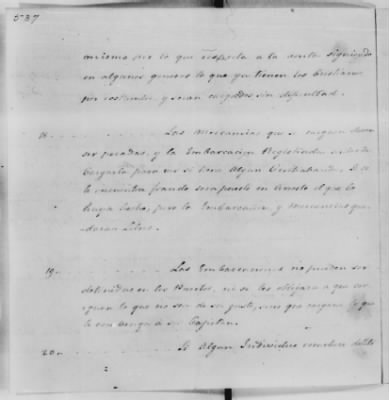 537
mismo por lo que respecta a la
en algunos generos lo que ya tienen los
por costumbre, y sean cargados sin dificultad.
18. Las Mercancias que se carguen
ser pesadas, y la Embarcacion Registrada antes de
Cargarla para ver si tiene Algun Contrabando. Si se
le encuentra fraude sera puesto en Arresto el que lo
haya hecho, pero la Embarcacion y Mercancias que
daran Libres.
19. Las Embarcaciones no pueden ser
detenidas en los Puertos, ni se les obligara a que car
guen lo que no sea de su gusto, sino que carguen lo que
le convenga a su Capitan.
20. Si Algun Individuo